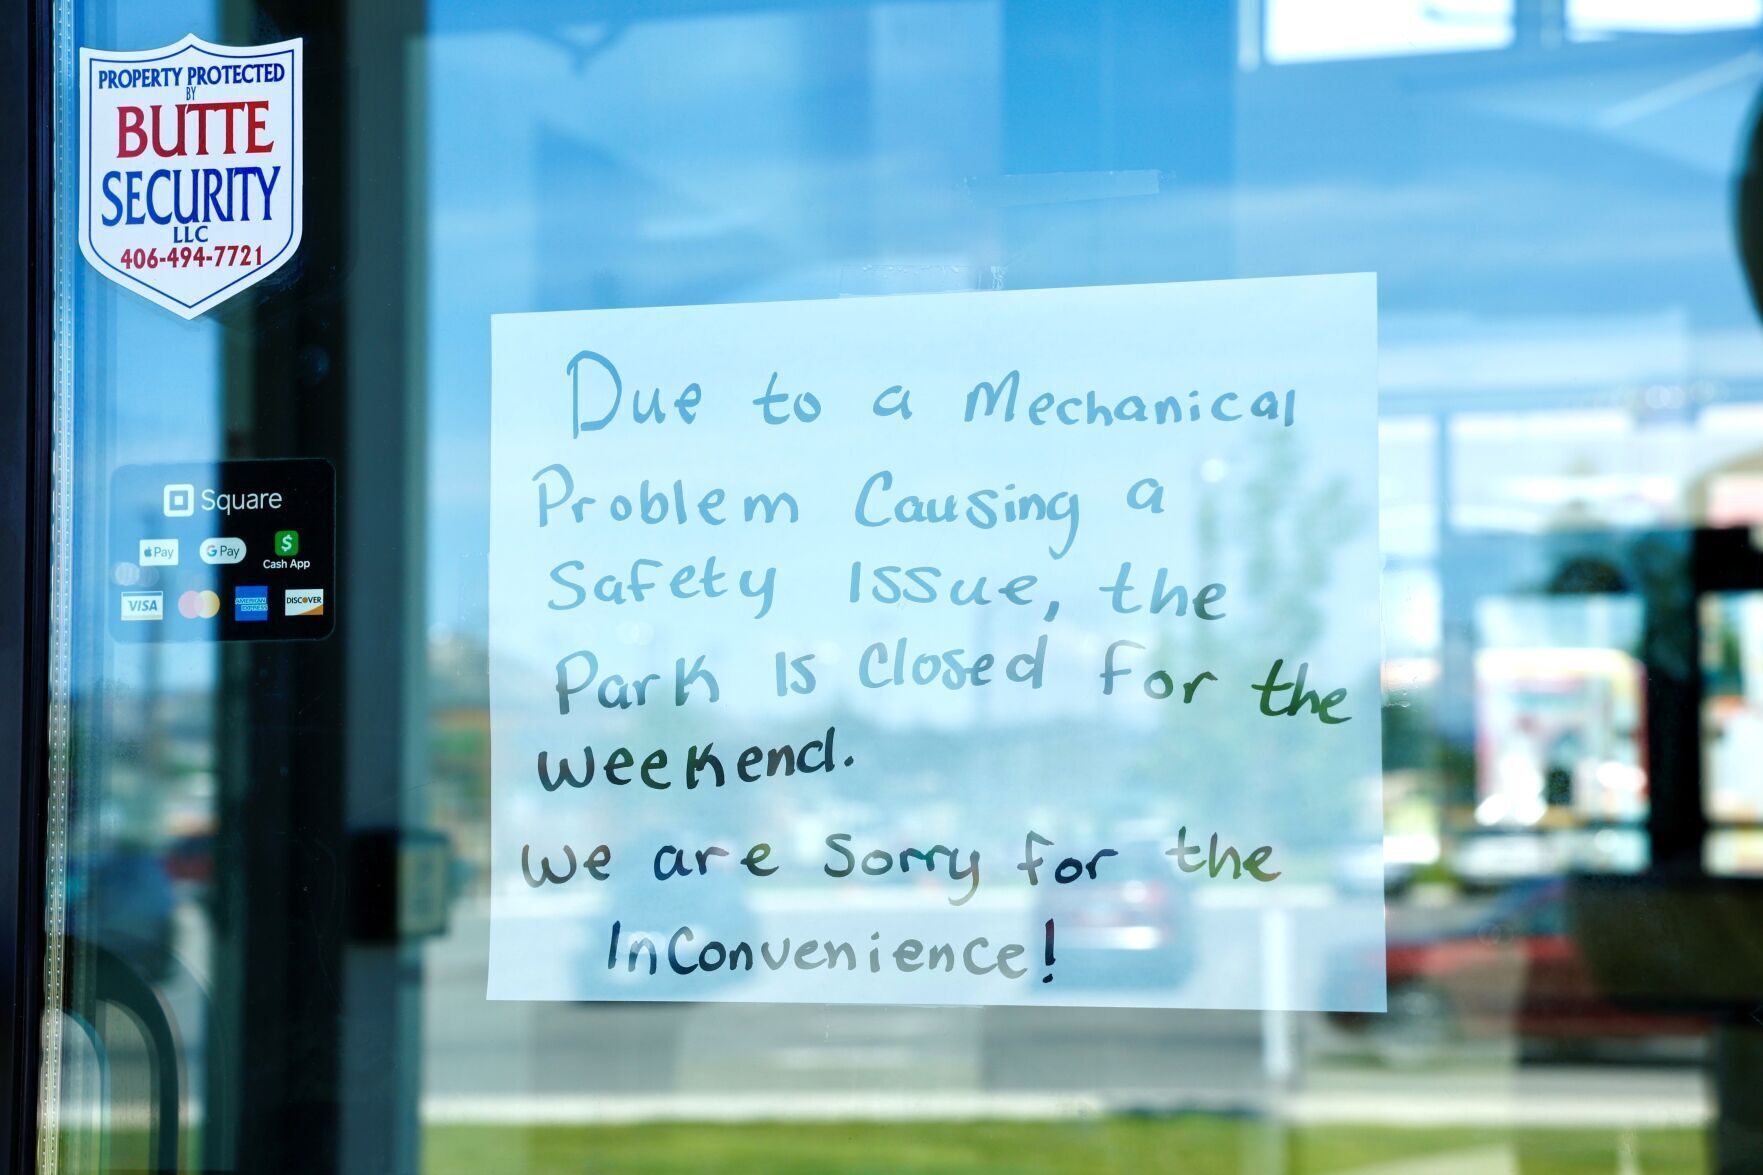 PROPERTY PROTECTED
BY
BUTTE
SECURITY
LLC
406-494-7721
Square
Pay
G Pay
Cash App
VISA
AMERICAN
EXPRESS
DISCOVER
Due to a Mechanical
Problem Causing a
Safety Issue, the
Park Is Closed for the
weekend.
We are Sorry for the
InConvenience!